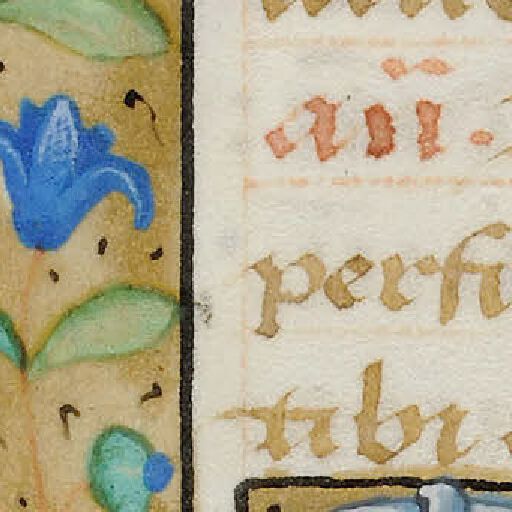 an̄.
perfi
tibi